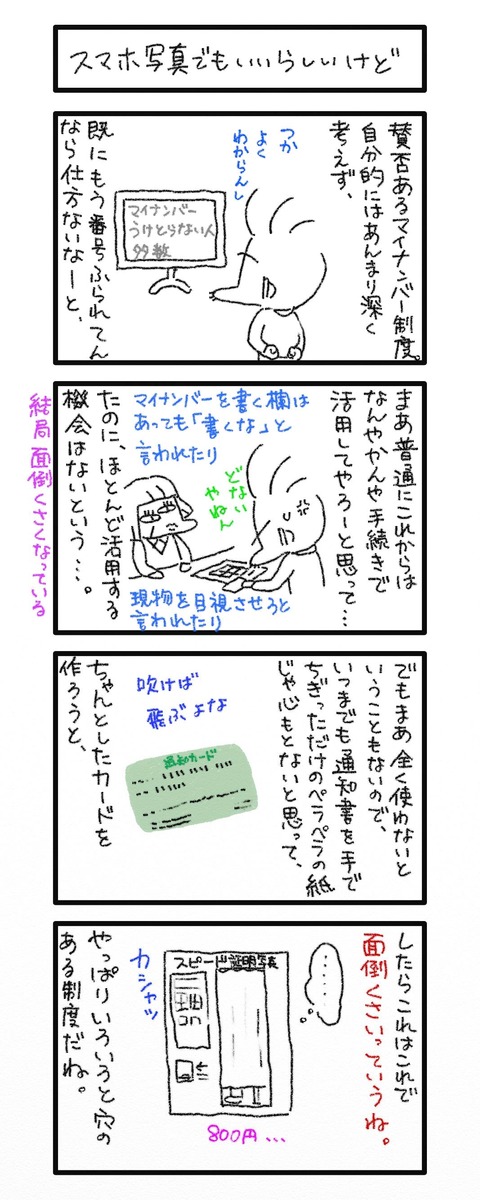 スマホ写真でもいいらしいけど
賛否あるマイナンバー制度。
自分的にはあんまり深く
考えず、
つか
よく
わからんし
マイナンバー
うけとらない人
多数
既にもう番号ふられてん
なら仕方ないなーと、
まあ普通にこれからは
なんやかんや手続きで
活用してやろーと思って…
マイナンバーを書く欄は
あっても「書くな」と
言われたり
どない
やねん
現物を目視させろと
言われたり
たのに、ほとんど活用する
機会はないという…。
結局面倒くさくなっている
でもまあ全く使わないと
いうこともないので、
いつまでも通知書を手で
ちぎっただけのペラペラの紙
じゃ心もとないと思って、
吹けば
飛ぶよな
通知カード
ちゃんとしたカードを
作ろうと、
したらこれはこれで
面倒くさいっていうね。
……
スピード証明写真
カシャッ
800円…
やっぱりいろいろと穴の
ある制度だね。